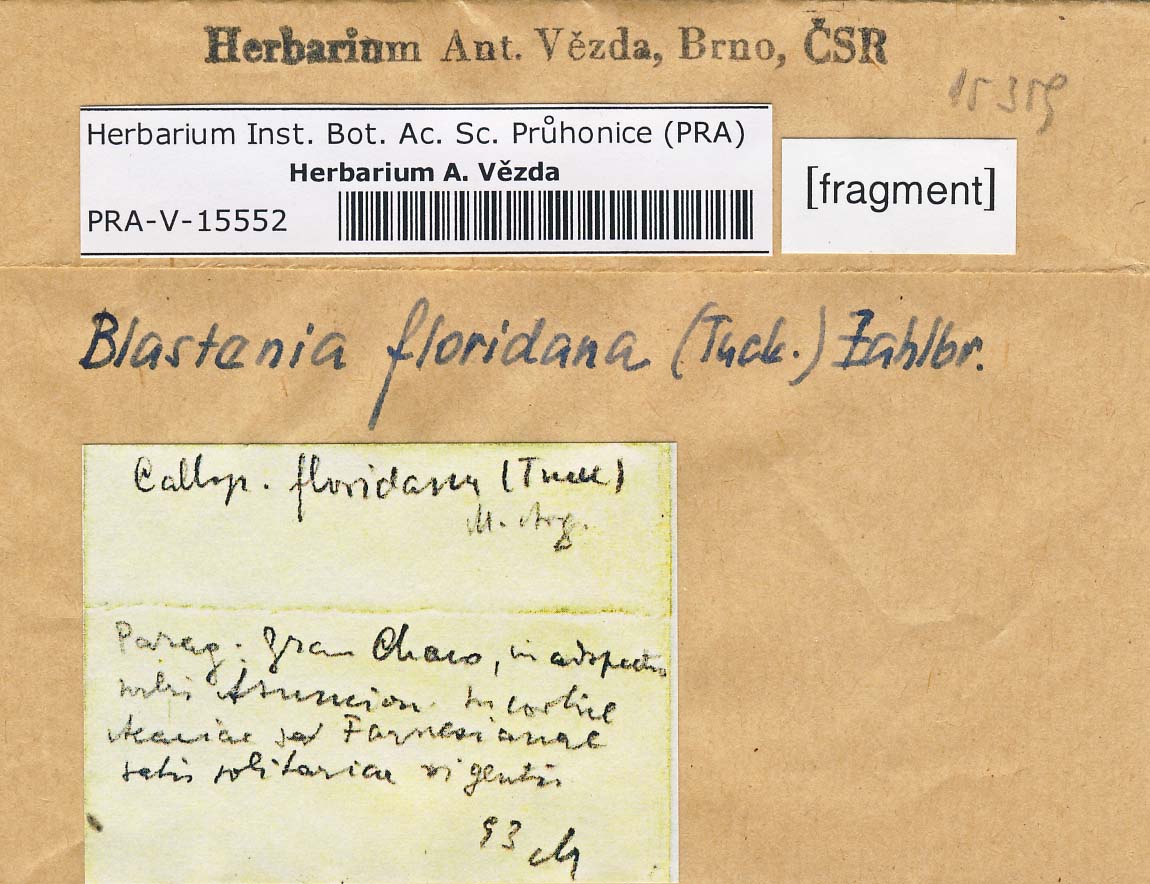 Herbarium Ant. Vězda, Brno, ČSR
15359
Herbarium Inst. Bot. Ac. Sc. Průhonice (PRA)
Herbarium A. Vězda
PRA-V-15552
[fragment]
Blastenia floridana (Tuck.) Zahlbr.
Callop. floridanum (Tuck)
M. Arg.
Parag. Gran Chaco, in adspectu
urbis Asuncion. In cortice
Acaciae Farnesianae
satis solitariae vigentis
93